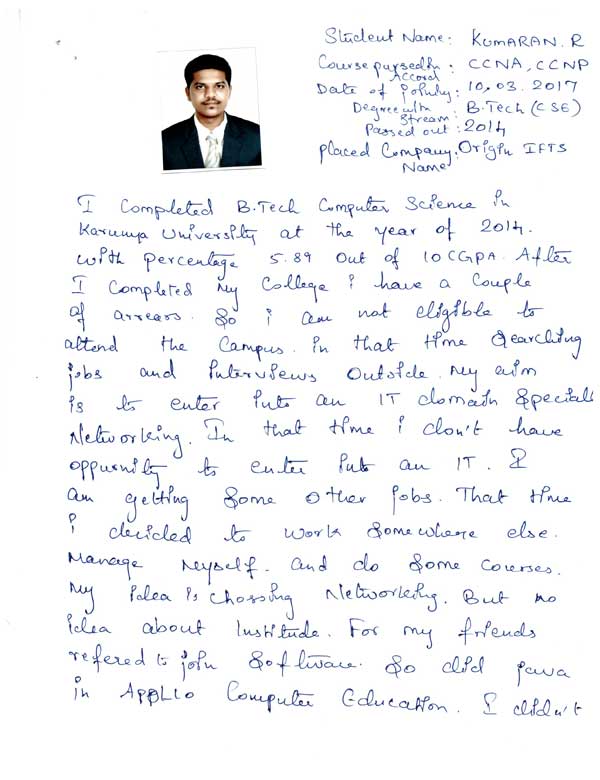 Student Name: KUMARAN. R
Course pursedIn : CCNA, CCNP
Accord
Date of : 10.03.2017
Degree with : B.Tech (CSE)
Stream
Passed out : 2014
placed Company: Origin IFTS
Name
I Completed B.Tech Computer Science in
Karunya University at the year of 2014.
with percentage 5.89 out of 10 CGPA. After
I Completed my College i have a couple
of arrears. So i am not eligible to
attend the Campus. in that time Searching
jobs and interviews outside. My aim
is to enter into an IT domain Speciall
Networking. In that time i don't have
oppurnity to enter into an IT. I
am getting Some other jobs. That time
i decided to work Somewhere else.
Manage Myself. and do Some courses.
My idea is chossing Networking. But no
idea about Institude. For my friends
refered to join Software. So did java
in APPLIO Computer Education. I didn't